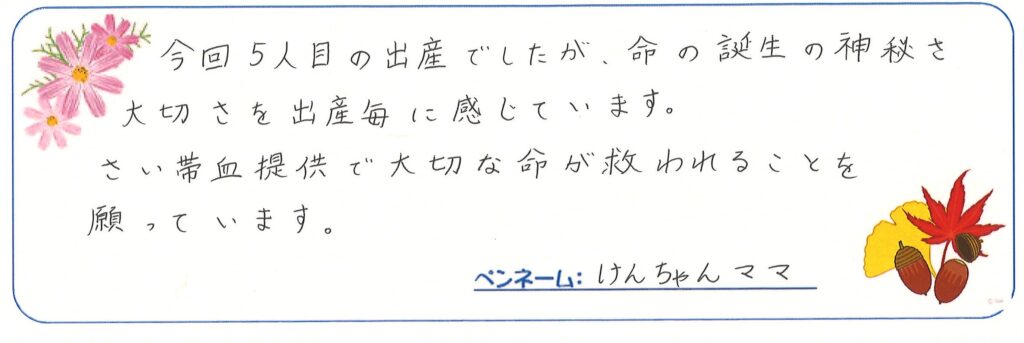 今回5人目の出産でしたが、命の誕生の神秘さ
大切さを出産毎に感じています。
さい帯血提供で大切な命が救われることを
願っています。
ペンネーム: けんちゃんママ